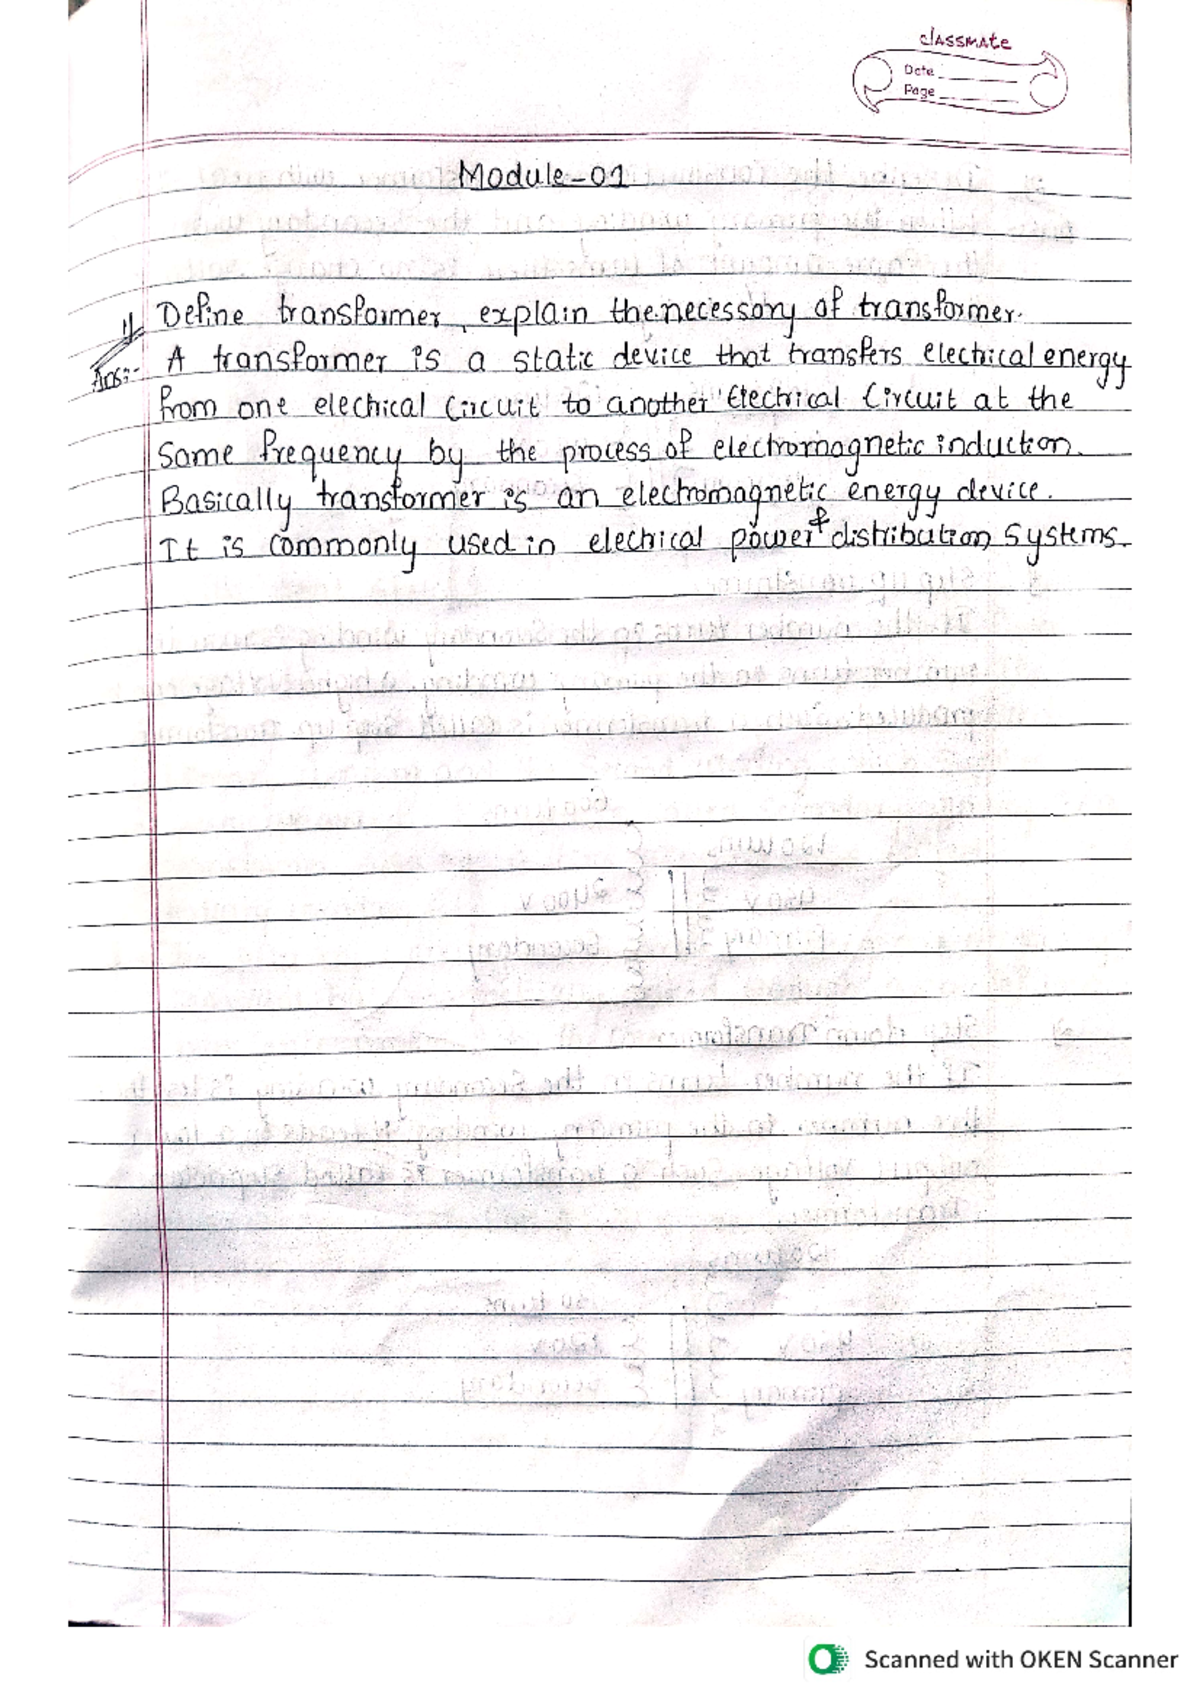 classmate
Date
Page
Module-01
1) Define transformer, explain the necessary of transformer.
Ans:- A transformer is a static device that transfers electrical energy
from one electrical circuit to another electrical circuit at the
same frequency by the process of electromagnetic induction.
Basically transformer is an electromagnetic energy device.
It is commonly used in electrical power & distribution systems.
Scanned with OKEN Scanner